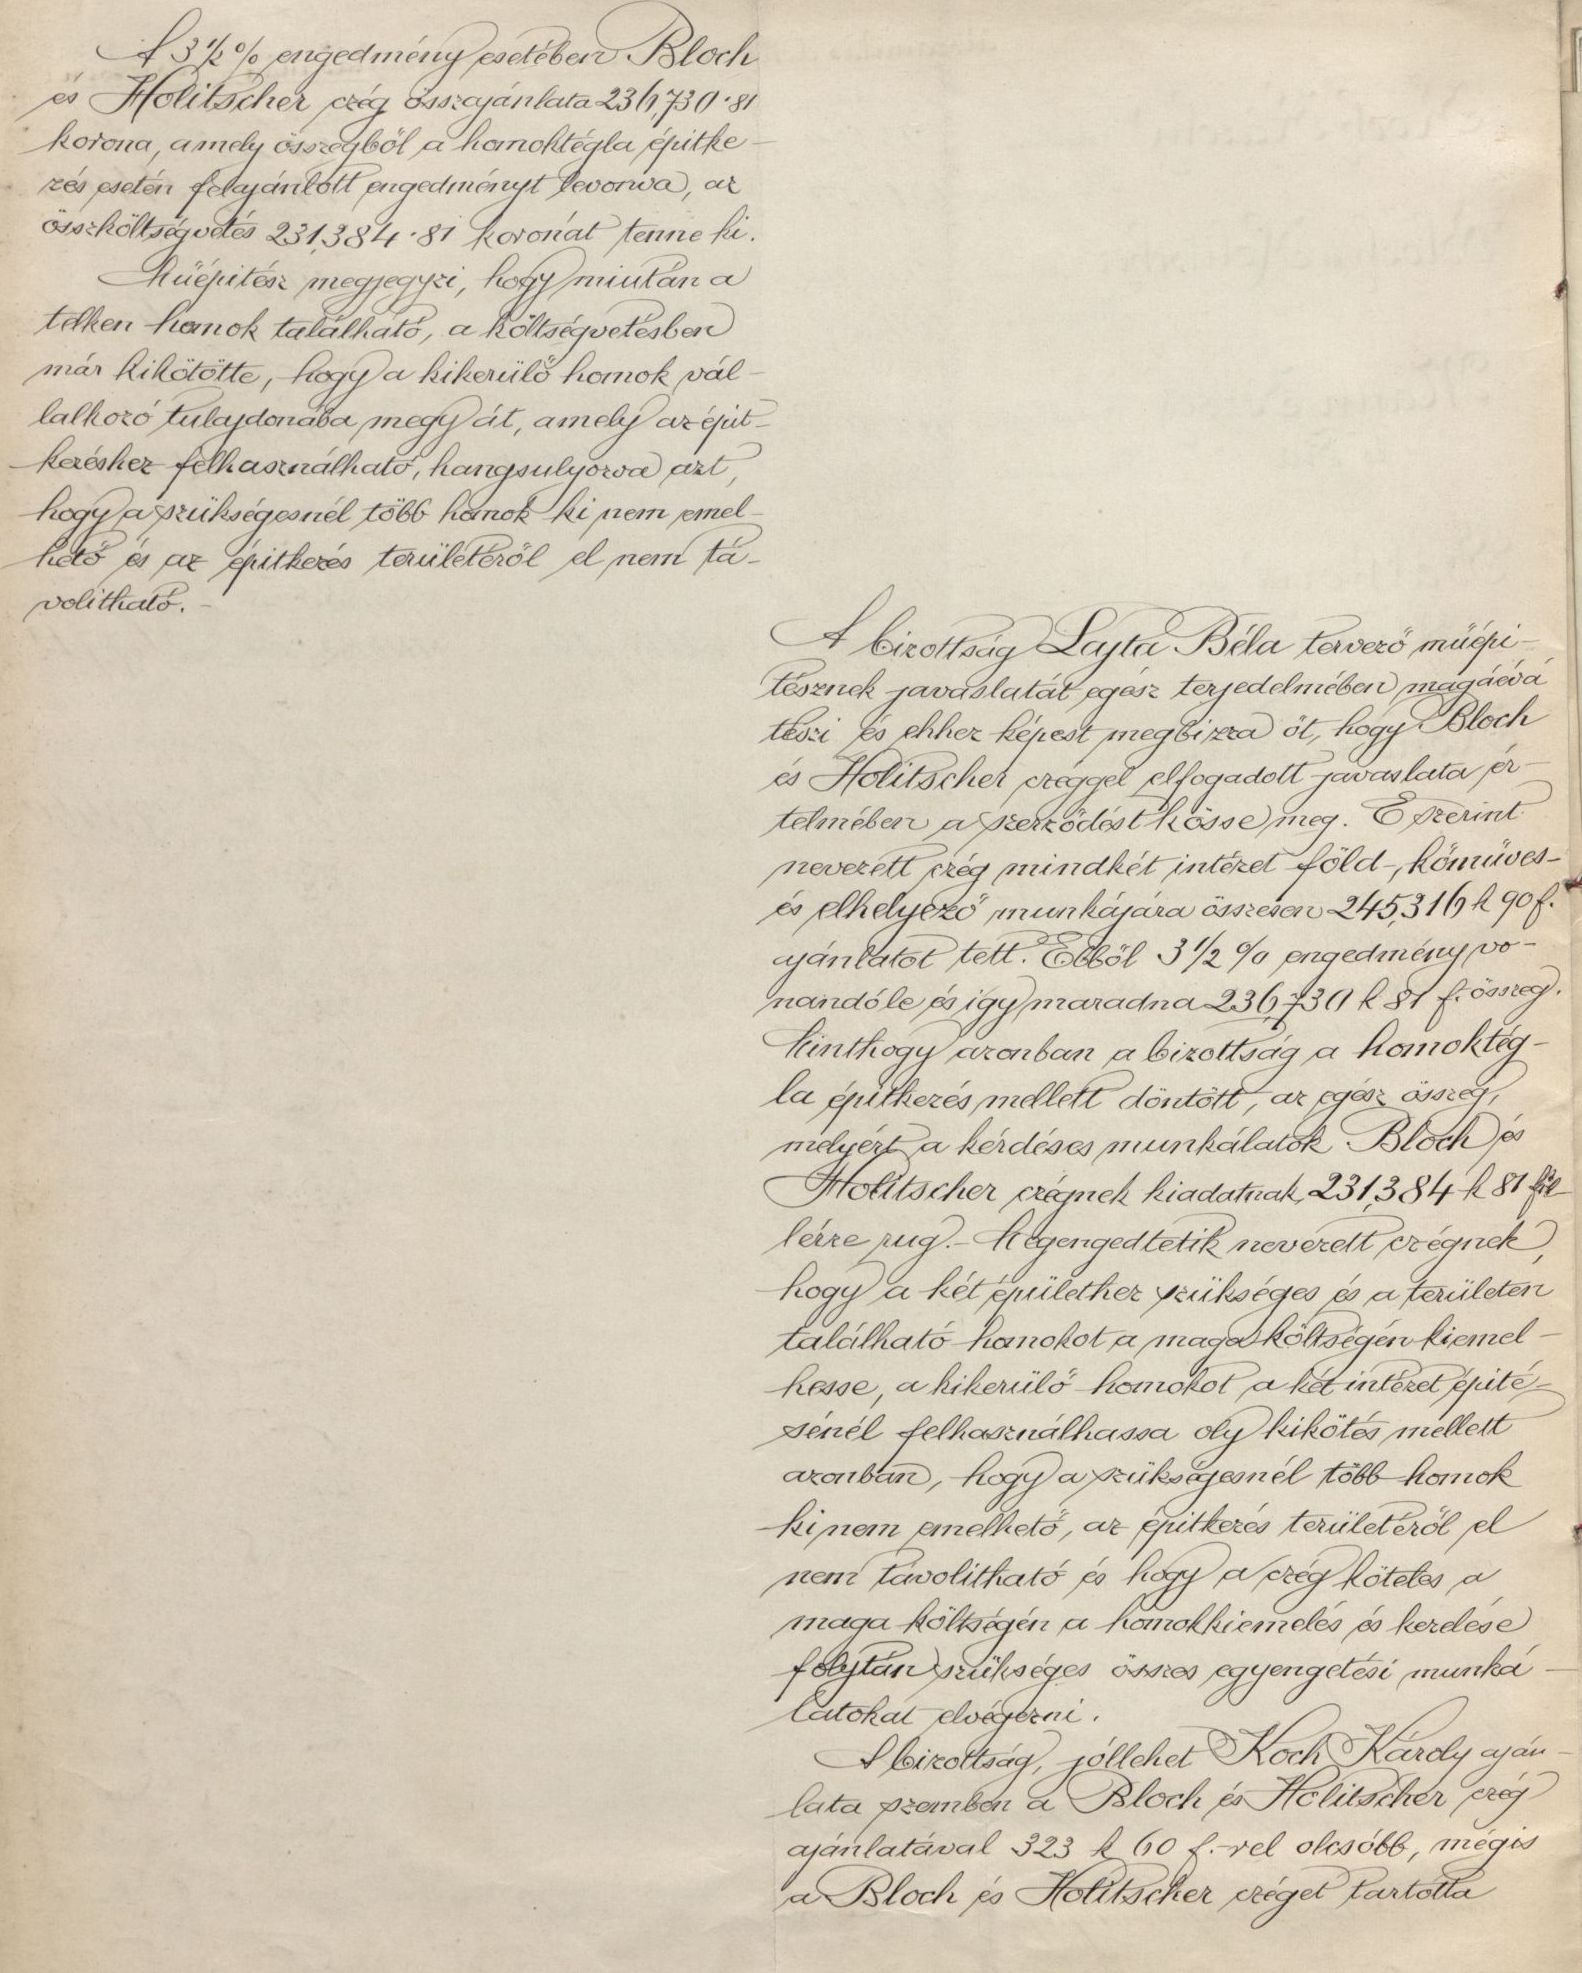 A 3 1/2 % engedmény esetében Bloch
és Holitscher czég összajánlata 236,730·81
korona, amely összegből a homoktégla épitke-
zés esetén felajánlott engedményt levonva, az
összköltségvetés 231,384·81 koronát tenne ki.
Műépitész megjegyzi, hogy miután a
telken homok található, a költségvetésben
már kikötötte, hogy a kikerülő homok vál-
lalkozó tulajdonába megy át, amely az épit-
kezéshez felhasználható, hangsulyozva azt,
hogy a szükségesnél több homok ki nem emel-
hető és az épitkezés területéről el nem tá-
volitható.-
A bizottság Lajta Béla tervező műépi-
tésznek javaslatát egész terjedelmében magáévá
teszi és ehhez képest megbizza őt, hogy Bloch
és Holitscher czéggel elfogadott javaslata ér-
telmében a szerződést kösse meg. E szerint
nevezett czég mindkét intézet föld-, kőműves-
és elhelyező munkájára összesen 245,316 k 90 f.
ajánlatot tett. Ebből 3 1/2 % engedmény vo-
nandó le és igy maradna 236,730 k 81 f. összeg.
Minthogy azonban a bizottság a homoktég-
la épitkezés mellett döntött, az egész összeg,
melyért a kérdéses munkálatok Bloch és
Holitscher czégnek kiadatnak, 231,384 k 81 fil-
lérre rug.- Megengedtetik nevezett czégnek,
hogy a két épülethez szükséges és a területen
található homokot a maga költségén kiemel-
hesse, a kikerülő homokot a két intézet épité-
sénél felhasználhassa oly kikötés mellett
azonban, hogy a szükségesnél több homok
ki nem emelhető, az épitkezés területéről el
nem távolitható és hogy a czég köteles a
maga költségén a homokkiemelés és kezelése
folytán szükséges összes egyengetési munká-
latokat elvégezni.
A bizottság, jóllehet Koch Károly aján-
lata szemben a Bloch és Holitscher czég
ajánlatával 323 k 60 f.-rel olcsóbb, mégis
a Bloch és Holitscher czéget tartotta